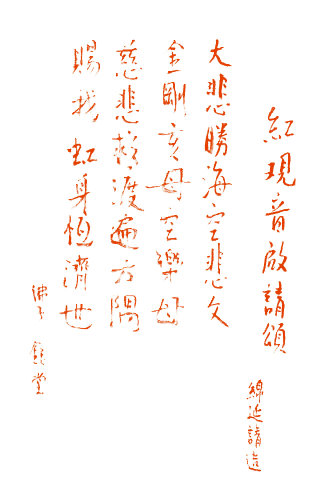 紅現音啟請頌
綿延請造
大悲勝海空悲父
金剛亥母空樂母
慈悲渡遍方隅
賜我虹身恆濟世
堂